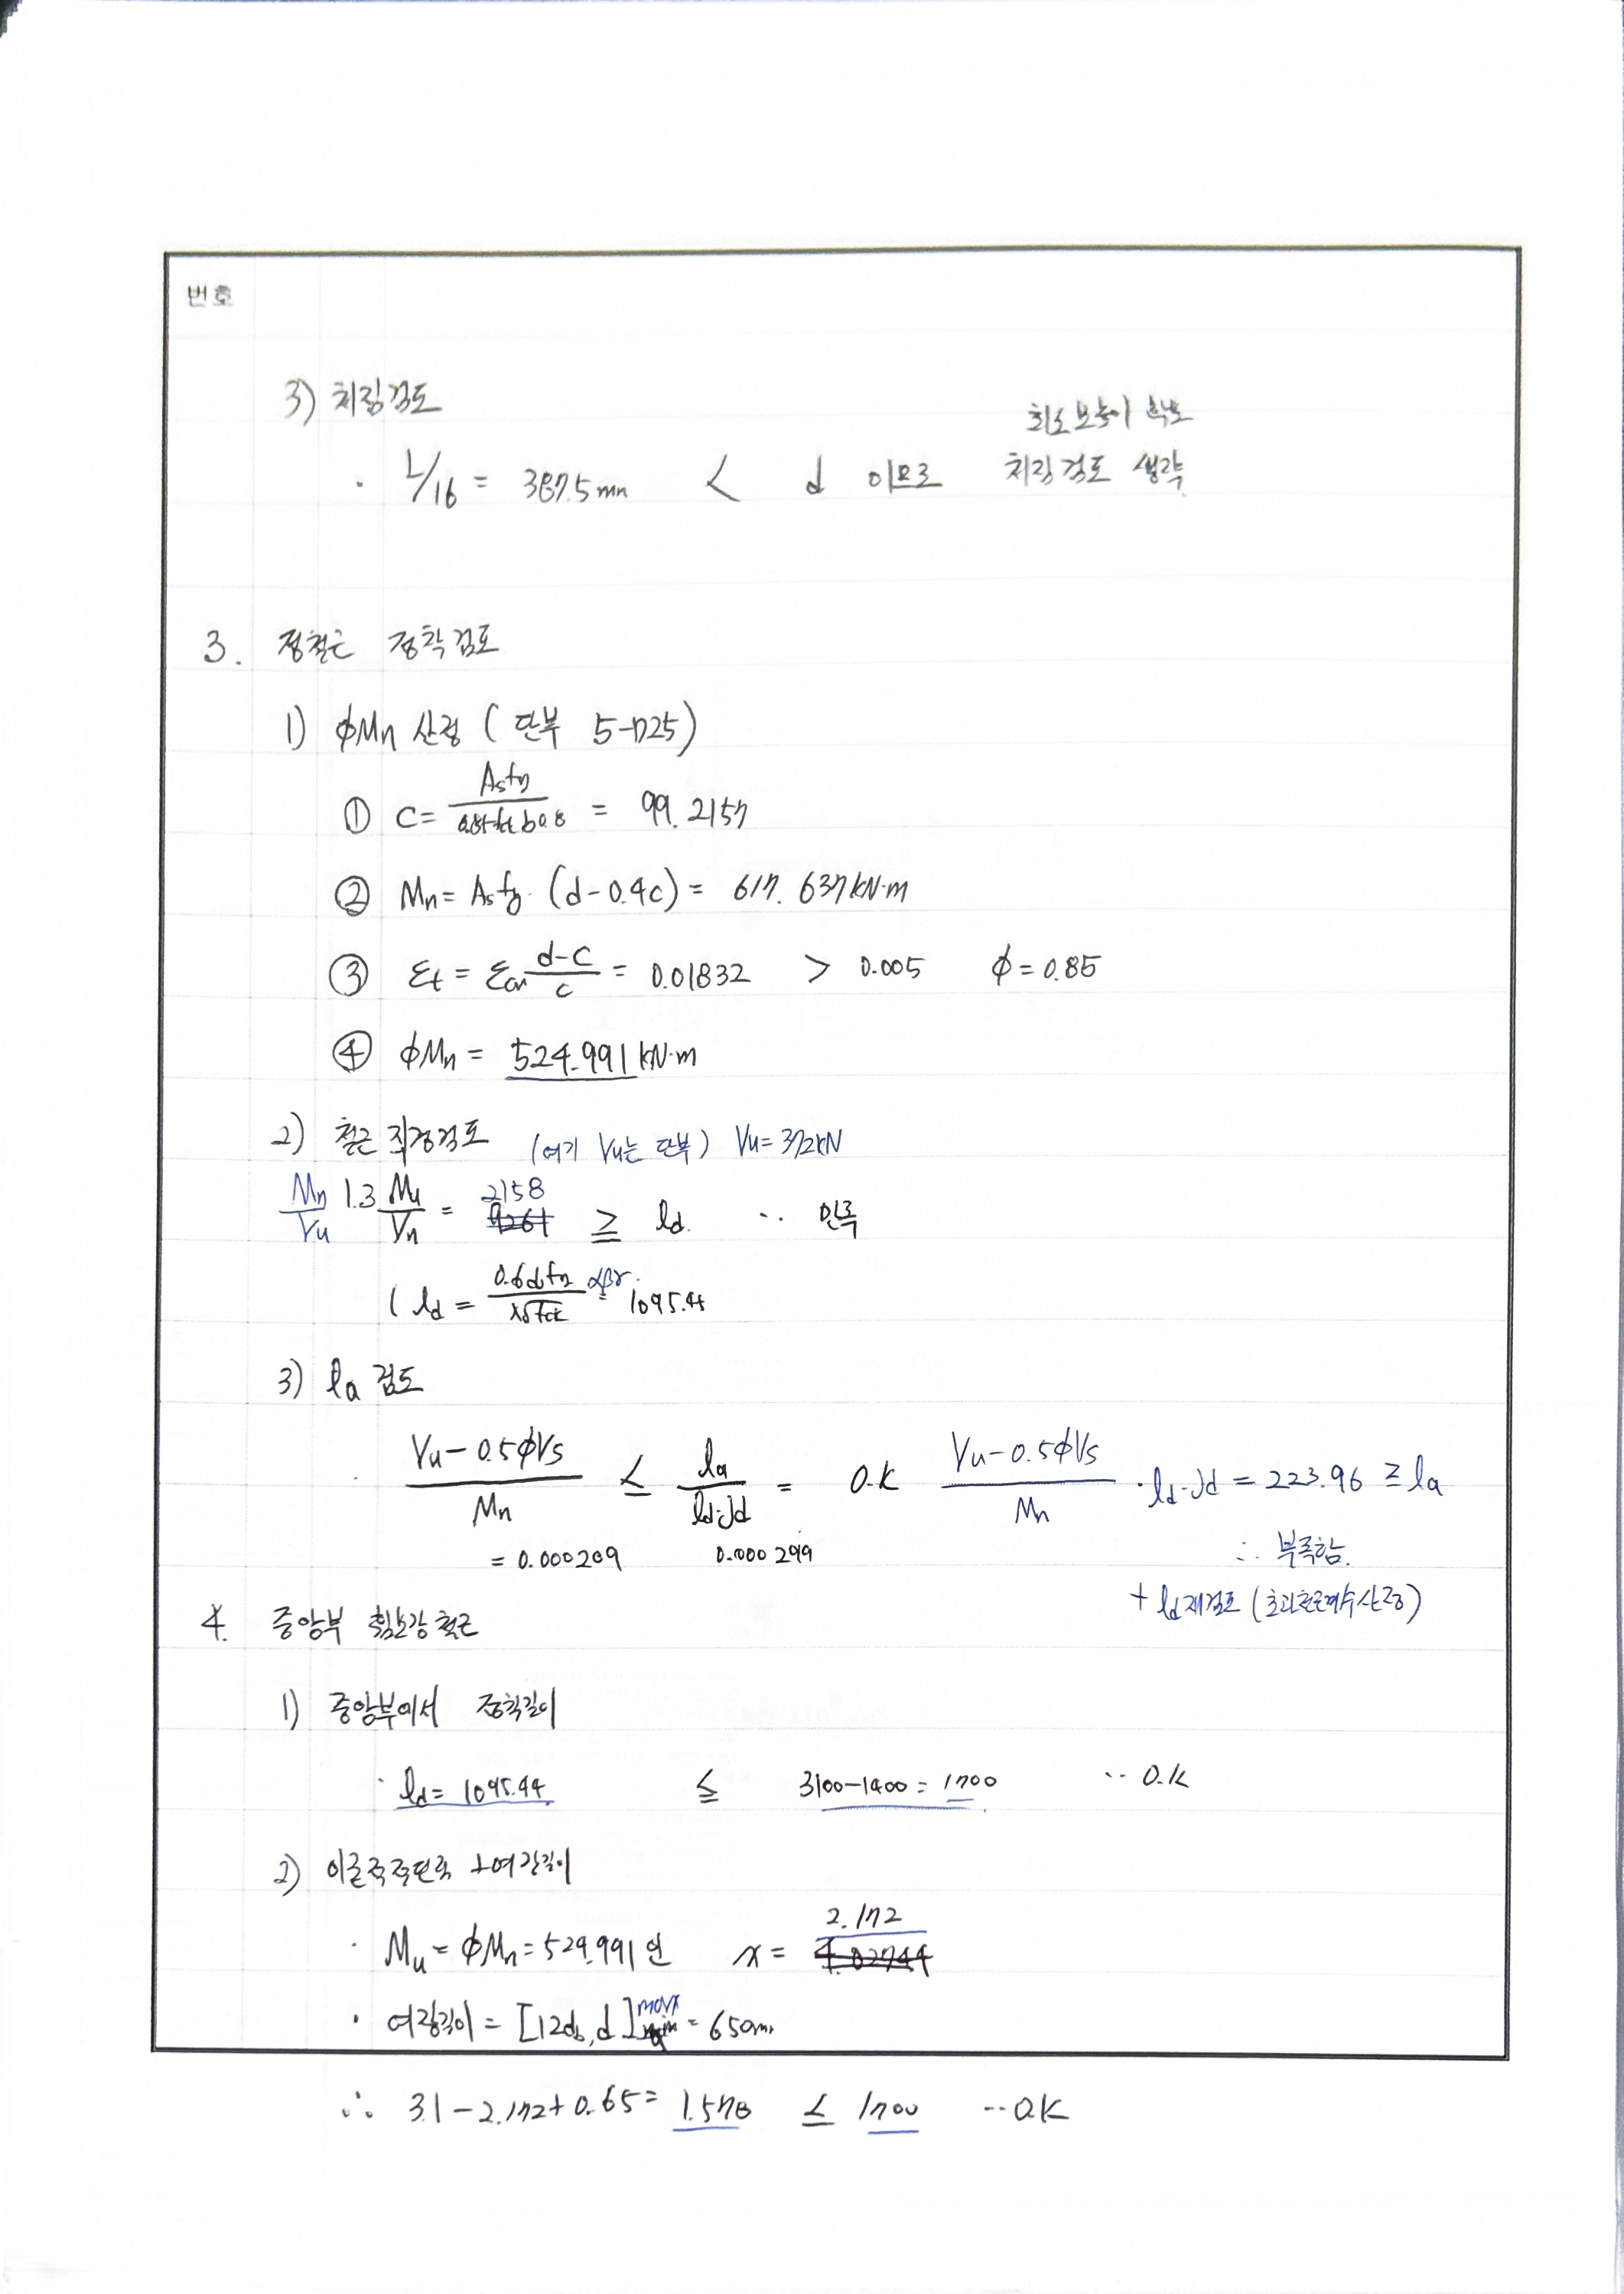 번호
3) 처짐검토
최소 보춤이 확보
· L/16 = 387.5mm < d 이므로 처짐검토 생략
3. 정철근 정착검토
1) ϕMn 산정 ( 단부 5-D25)
① C= Asfy / 0.85fck b 0.8 = 99.2157
② Mn= As fy · (d-0.4c) = 617.637 kN·m
③ εt = εcu (d-c)/c = 0.01832 > 0.005 ϕ=0.85
④ ϕMn = 524.991 kN·m
2) 철근 직경검토 (여기 Vu는 단부) Vu=372kN
Mn/Vu 1.3 Mn/Vn = 2158 ≥ ld ∴ 만족
( ld = 0.6dbfy / λ√fck αβγ = 1095.44
3) la 검토
(Vu-0.5ϕVs)/Mn ≤ la/(ld·jd) = O.K (Vu-0.5ϕVs)/Mn · ld·jd = 223.96 ≥ la
= 0.000209 0.000299 ∴ 부족함.
+ ld 재검토 (초과철근계수 산정)
4. 중앙부 휨보강 철근
1) 중앙부에서 정착길이
· ld= 1095.44 ≤ 3100-1400 = 1700 ∴ O.K
2) 이론적 절단점 + 여장길이
· Mu = ϕMn = 524.991 인 x = 2.172
· 여장길이 = [12db, d]max = 650mm
∴ 3.1 - 2.172 + 0.65 = 1.578 ≤ 1700 ∴ O.K